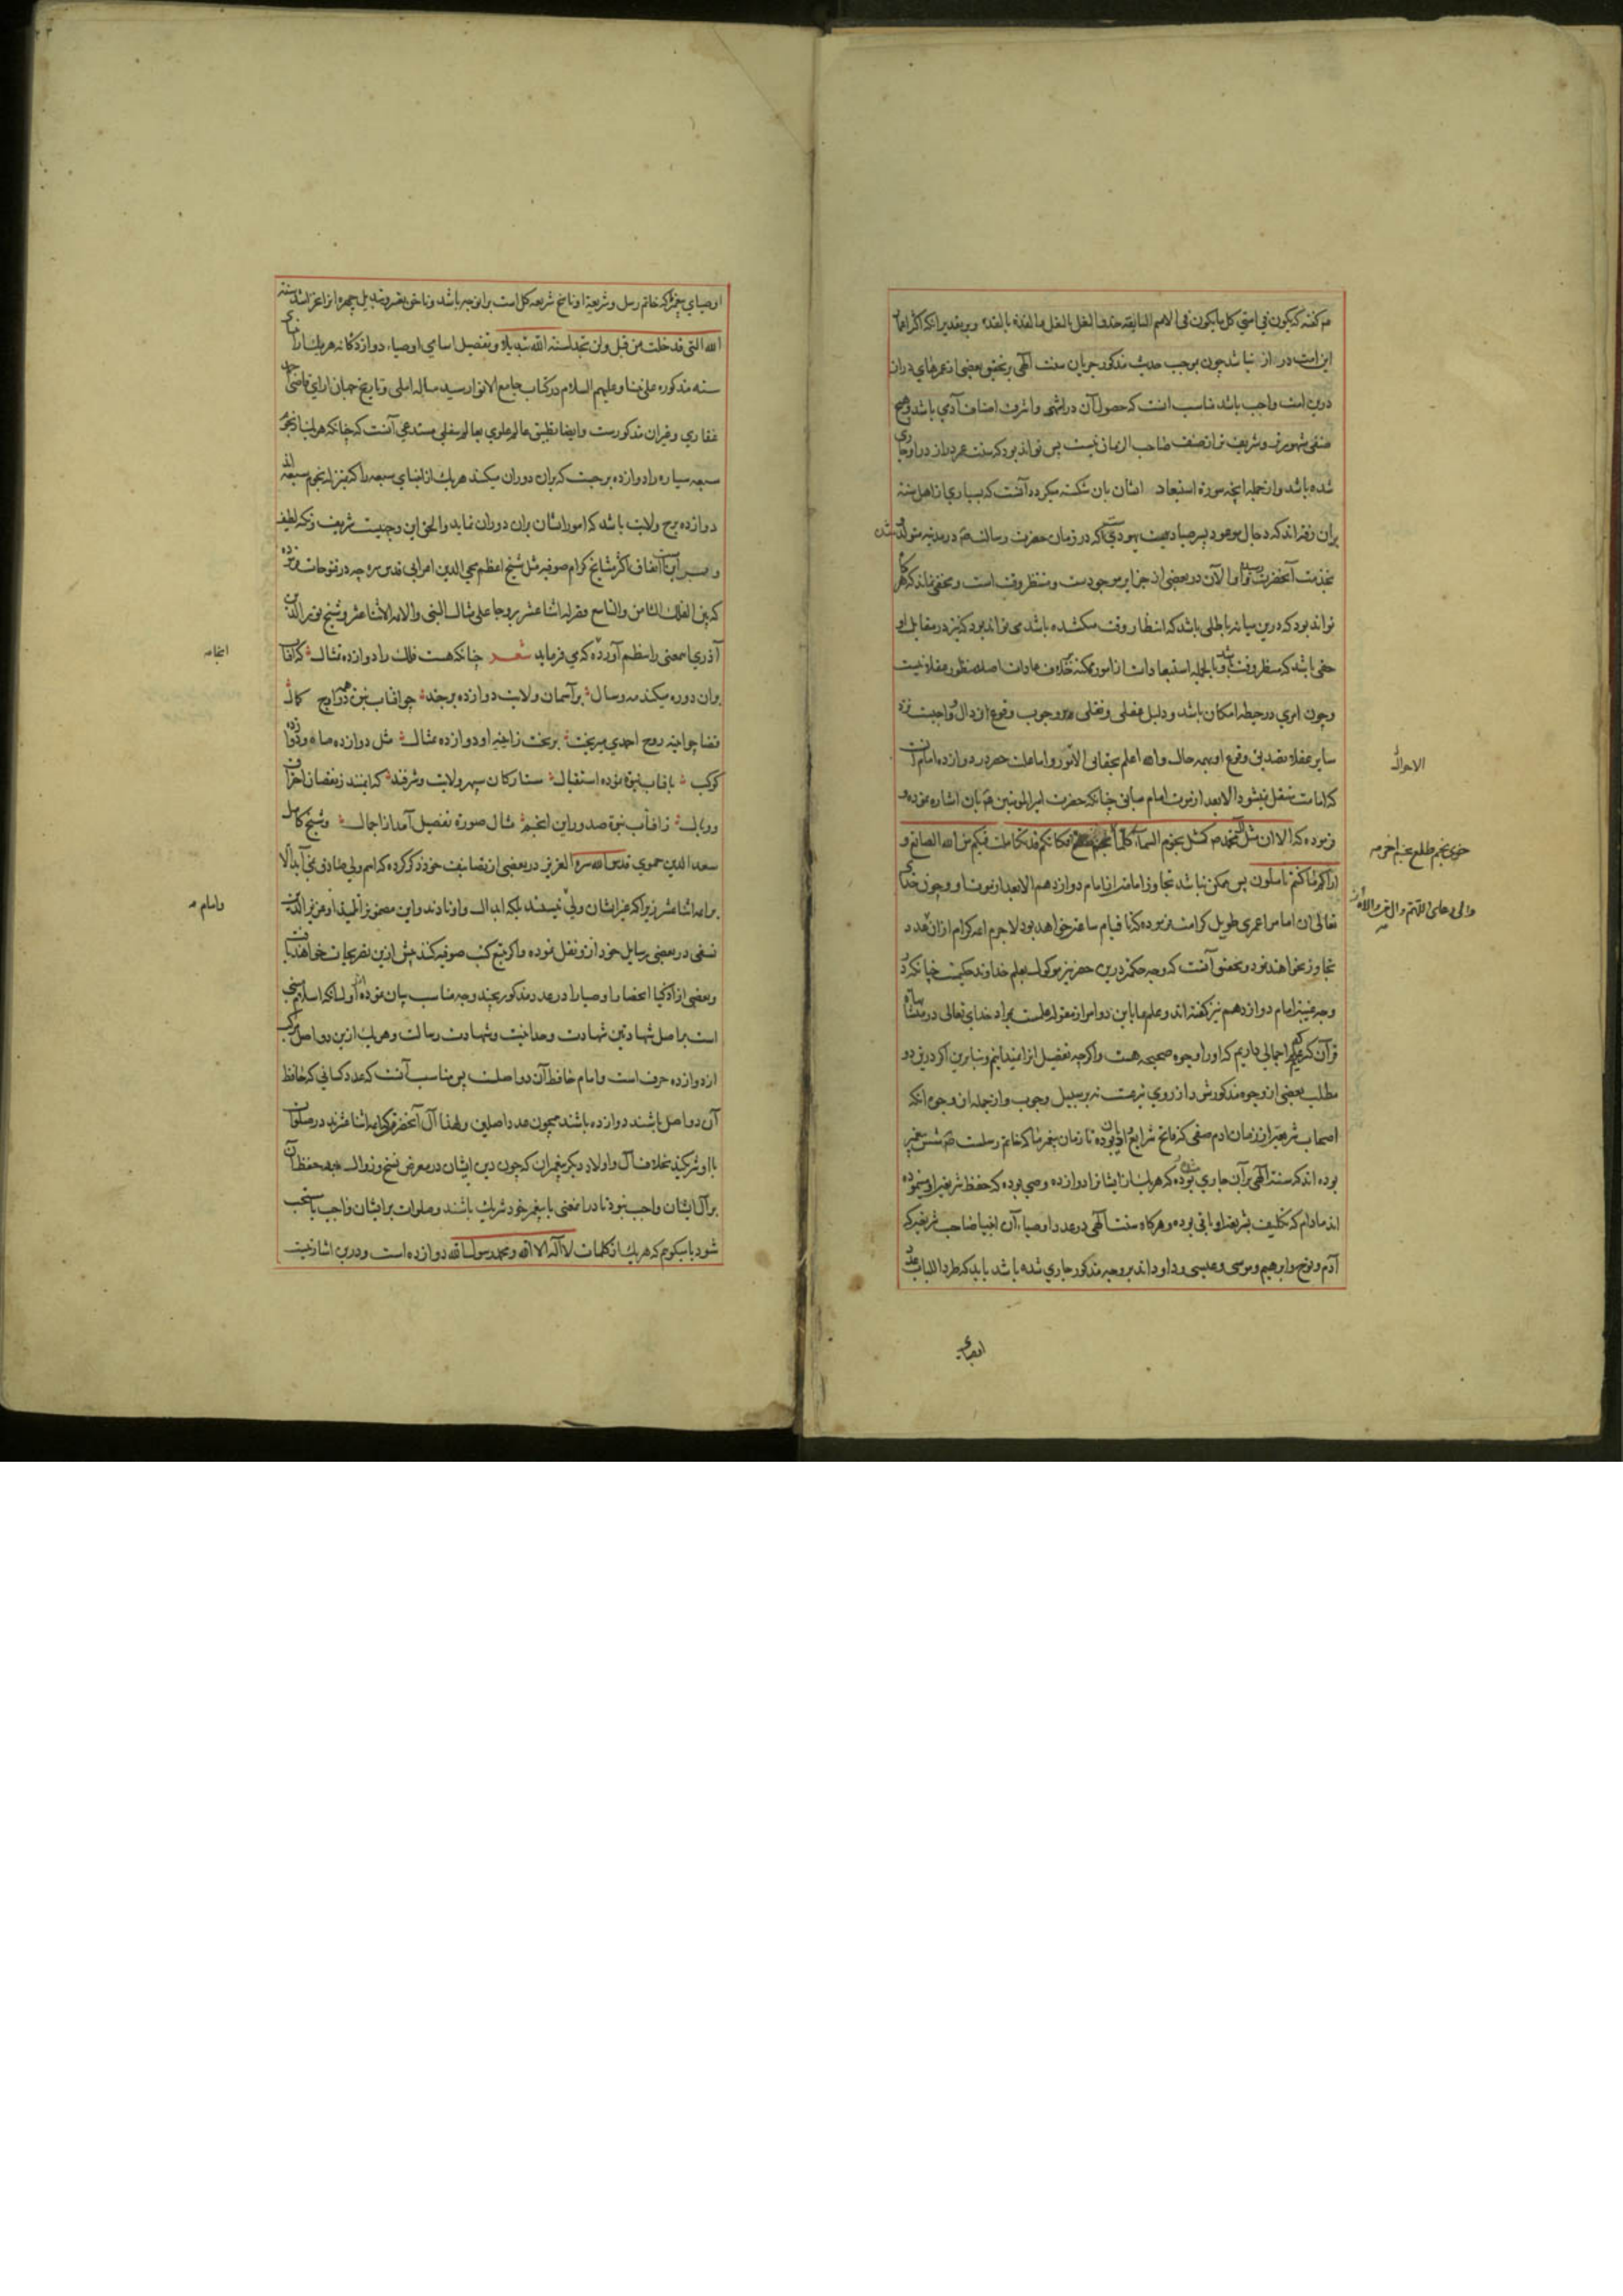 م گفته که یکون فی امتی کل ما یکون فی الامم السابقه حذو النعل بالنعل والقذة بالقذة وبر تقدیر انکه اکثر اعمار
این امت دراز نباشد چون بموجب حدیث مذکور جریان سنت الهی بر تحقیق بعضی از عمرهای دراز
درین امت واجب باشد مناسب انست که حصول آن در اشهر واشرف اصناف آدمی باشد وهیچ
صنفی مشهورتر وشریف تر از صنف صاحب الزمان نیست پس تواند بود که سنت عمر دراز در او جاری
شده باشد واز جمله آنچه سورة استبعاد ایشان بان شکسته میگردد آنست که بسیاری از اهل سنة
بران رفته اند که دجال موعود پسر صیاد یهودی که در زمان حضرت رسالت در مدینه متولد شده
بخدمت آنحضرت رسیده والآن در بعضی از جزایر موجودست ومنتظر وقت است ومخفی نماند که هرگاه
تواند بود که درین میانه باطلی باشد که انتظار وقت میکشیده باشد می تواند بود که نیز در مقابل او
حقی باشد که منتظر وقت باشد وبالجمله استبعادات از امور ممکنه خلاف عادات اصلا منظور عقلا نیست
وچون امری در حیطه امکان باشد ودلیل عقلی ونقلی بر وجوب وقوع او دال واجبست نزد
سایر عقلا تصدیق وقوع او بهمه حال والله اعلم بحقایق الامور واما علت حصر در دوازده امام آنست
که امامت منتقل نمیشود الا بعد از فوت امام سابق چنانکه حضرت امیرالمومنین بان اشاره نموده و
فرموده که الا ان مثل آل محمد کمثل نجوم السماء کلما نجم فکانکم قد تکاملت فیکم من الله الصنایع و
اراکم ما کنتم تاملون پس ممکن نباشد تجاوز امامت از امام دوازدهم الا بعد از فوت او وچون خدای
تعالی ان امام را عمری طویل کرامت فرموده که تا قیام ساعة خواهد بود لاجرم ائمه کرام ازان عدد
تجاوز نخواهند نمود وتحقیق آنست که وجه حکمة درین حصر نیز موکول بعلم خداوند حکیمست چنانکه در
وجه غیبة امام دوازدهم نیز گفته اند وعلم ما باین دو امر از مقوله علمست بمراد خدای تعالی در متشابهات
قرآن کریم که اجمالی داریم که او را وجوه صحیحه هست واگرچه تفصیل انرا نمیدانیم وبنابرین اگر درین دو
مطلب بعضی از وجوه مذکور شد از روی تبرعست نه بر سبیل وجوب واز جمله ان وجوه انکه
اصحاب شریعة از زمان ادم صفی که فاتح شرایع ادیان بوده تا زمان پیغمبر ما که خاتم رسلست شش پیغمبر
بوده اند که سنة الهی بر آن جاری شده بوده که هر یک از ایشانرا دوازده وصی بوده که حفظ شریعة او مینموده
اند مادام که تکلیف بشریعة او باقی بوده وهرگاه سنت الهی در عدد اوصیاء آن انبیا صاحب شریعة که
آدم ونوح وابرهیم وموسی وعیسی وداود اند بر وجه مذکور جاری شده باشد باید که طردا للباب عدد
الاحوال
خوی نجم طلع نجم اخر
اوصیای
اوصیای پیغمبر که خاتم رسل وشریعة او ناسخ شریعه کل است برانوجه باشد وناخن تغییر وتبدیل چهره انرا نخراشد سنة
الله التی قد خلت من قبل ولن تجد لسنة الله تبدیلا وتفصیل اسامی اوصیاء دوازدگانه هر یک از انبیای
سته مذکوره علی نبینا وعلیهم السلام در کتاب جامع الانوار سید حیدر املی وتاریخ جهان ارای قاضی
غفاری وغیران مذکورست وایضا تطبیق عالم علوی بعالم سفلی مستدعی آنست که چنانکه هر یک از نجوم
سبعه سیاره را دوازده برجست که بران دوران میکند هر یک از انبیای سبعه را که بمنزله نجوم سبعه اند
دوازده برج ولایت باشد که امور ایشان بران دوران نماید والحق این وجهیست شریف ونکته لطیف
اتفاق اکثر مشایخ کرام صوفیه مثل شیخ اعظم محی الدین اعرابی قدس سره چه در فتوحات
که بین الفلک الثامن والتاسع قصر له اثنا عشر بروجا علی مثال النبی والائمة الاثنا عشر وشیخ نورالدین
آذری این معنی را بنظم آورده که می فرماید شعر چنانکه هست فلک را دوازده تمثال که افتاب
بران دوره میکند مه وسال بر آسمان ولایت دوازده برجند چو افتاب نبی همه در اوج کمال
قضا چو آینه روح احمدی میریخت بریخت ز آینه او دوازده تمثال مثل دوازده ماه ودوازده
کوکب بافتاب نبوة نموده استقبال ستارگان سپهر ولایت وشرفند که ایمنند ز نقصان احتراق
ووبال ز افتاب نبوة صدور این انجم مثال صورة تفصیل آمد از اجمال وشیخ کامل
سعد الدین حموی قدس الله سره العزیز در بعضی از تصانیف خود ذکر کرده که اسم ولی صادق نمی آید الا
بر ائمه اثنا عشر زیرا که غیر ایشان ولی نیستند بلکه ابدال واوتادند واین مضمون را تلمیذ او عزیز الدین
نسفی در بعضی رسایل خود ازو نقل نموده واگر تتبع کتب صوفیه کنند بیش ازین تصریحات خواهند یافت
وبعضی از اذکیا انحصار اوصیا را در عدد مذکور بچند وجه مناسب بیان نموده اند اول انکه اسلام مبنی
است بر اصل شهادتین شهادت وحدانیت وشهادت رسالت وهر یک ازین دو اصل مرکب
از دوازده حرف است وامام حافظ آن دو اصلست پس مناسب آنست که عدد کسانی که حافظ
آن دو اصل باشند دوازده باشند همچون عدد اصلین ولهذا آل آنحضرت که ائمه اثنا عشرند در صلوات
با او شریکند بخلاف آل واولاد دیگر پیغمبران که چون دین ایشان در معرض نسخ وزوال بوده حفظ آن
بر آل ایشان واجب نبود تا درانمعنی با پیغمبر خود شریک باشند وصلوات بر ایشان واجب یا مستحب
شود یا میگویم که هر یک از کلمات لا اله الا الله ومحمد رسول الله دوازده است ودرین اشارتیست
اینجا
وامام